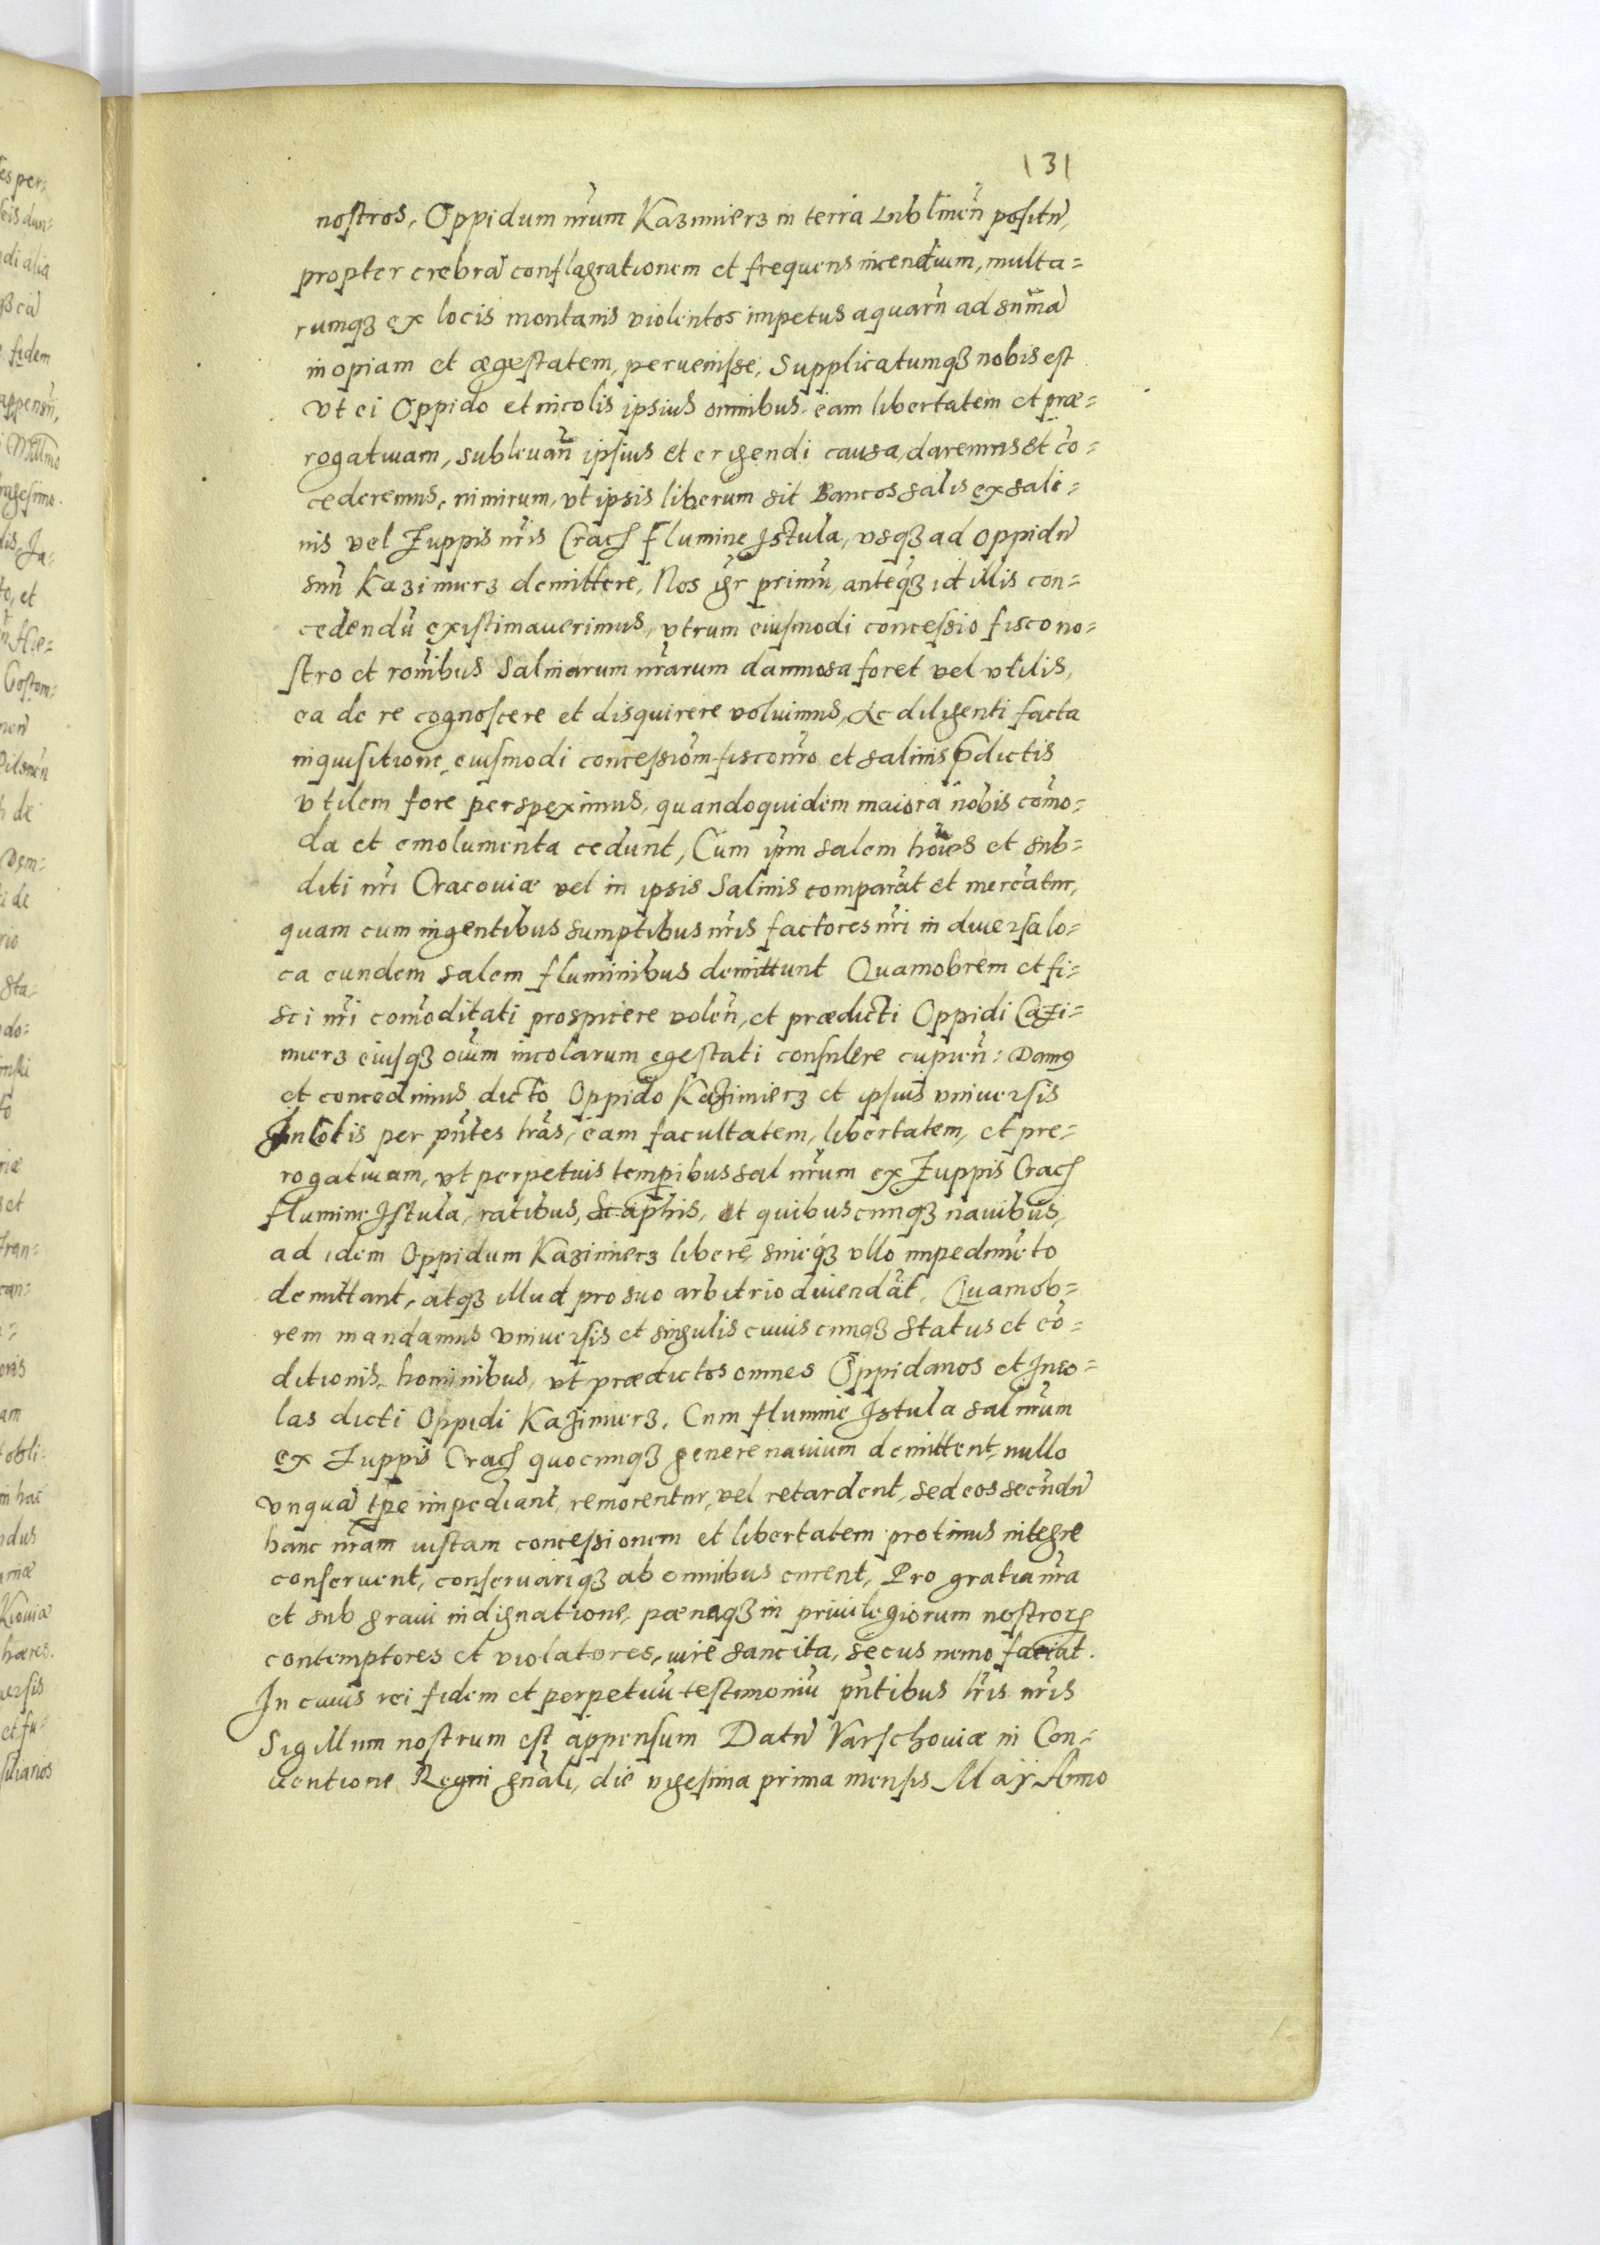 131
nostros, Oppidum nr̃um Kazimierz in terra Lublineñ positũ,
propter crebrã conflagrationem et frequens incendium, multa=
rumqȝ ex locis montanis violentos impetus aquarũ ad sum̃ã
inopiam et ægestatem, pervenisse, Supplicatumqȝ nobis est
vt ei Oppido et incolis ipsius omnibus, eam libertatem et præ=
rogatiuam, subleuañ ipsius et erigendi causa, daremus et cõ=
cederemus, nimirum, vt ipsis liberum sit Bancos salis ex sali=
nis vel Zuppis nr̃is Crac̃ flumine Istula, vsqȝ ad Oppidũ
suũ Kazimierz demittere, Nos igr̃ primũ, anteq̃ȝ id illis con=
cedendũ existimauerimus, vtrum eiusmodi concessio fisco no=
stro et rom̃ibus Salinarum nr̃arum damnosa foret vel vtilis,
ea de re cognoscere et disquirere voluimus, Ac diligenti facta
inquisitione, eiusmodi concessiõm fisco nr̃o et salinis p̃dictis
vtilem fore perspeximus, quandoquidem maiora nobis com̃o=
da et emolumenta cedunt, Cum ip̃m salem hoĩes et sub=
diti nr̃i Cracouiæ vel in ipsis Salinis comparãt et mercãtur,
quam cum ingentibus sumptibus nr̃is factores nr̃i in diuersa lo=
ca eundem salem fluminibus demittunt Quamobrem et fi=
sci nr̃i com̃oditati prospicere voleñ, et prædicti Oppidi Cazi=
mierz eiusqȝ oĩum incolarum egestati consulere cupieñ: Damꝰ
et concedimus dicto Oppido Kazimierz et ipsius vniuersis
Incolis per pñtes lr̃as, eam facultatem, libertatem, et pre=
rogatiuam, vt perpetuis temp̱ibus sal nr̃um ex Zuppis Crac̃
flumine Istula, ratibus, Scaphis, et quibuscunqȝ nauibus,
ad idem Oppidum Kazimierz libere, sineq́ȝ vllo impedimẽto
demittant, atqȝ illud pro suo arbitrio diuendãt, Quamob=
rem mandamus vniuersis et singulis cuiuscunqȝ status et cõ=
ditionis, hominibus, vt prædictos omnes Oppidanos et Inco=
las dicti Oppidi Kazimierz, Cum flumine Istula sal nr̃um
ex Zuppis Crac̃ quocunqȝ genere nauium demittent, nullo
vnquã tp̃e impediant, remorentur, vel retardent, sed eos secũdũ
hanc nr̃am iustam concessionem et libertatem protinus integre
conseruent, conseruariqȝ ab omnibus curent, Pro gratia nr̃a
et sub graui indignatione, pœnaqȝ in priuilegiorum nostroꝝ
contemptores et violatores, iure sancita, secus nemo faciat.
In cuius rei fidem et perpetuũ testimoniũ pñtibus lr̃is nr̃is
Sigillum nostrum est appensum Datũ Varschouiæ in Con=
uentione Regni gñali, die vigesima prima mensis Maÿ Anno